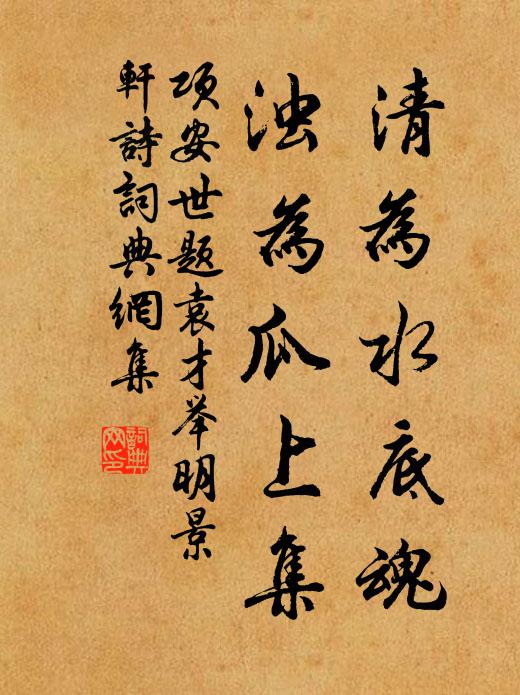 清為水底魂
浊為瓜上集
项安世题袁才举明景
軒詩詞典網集
詞典
网印